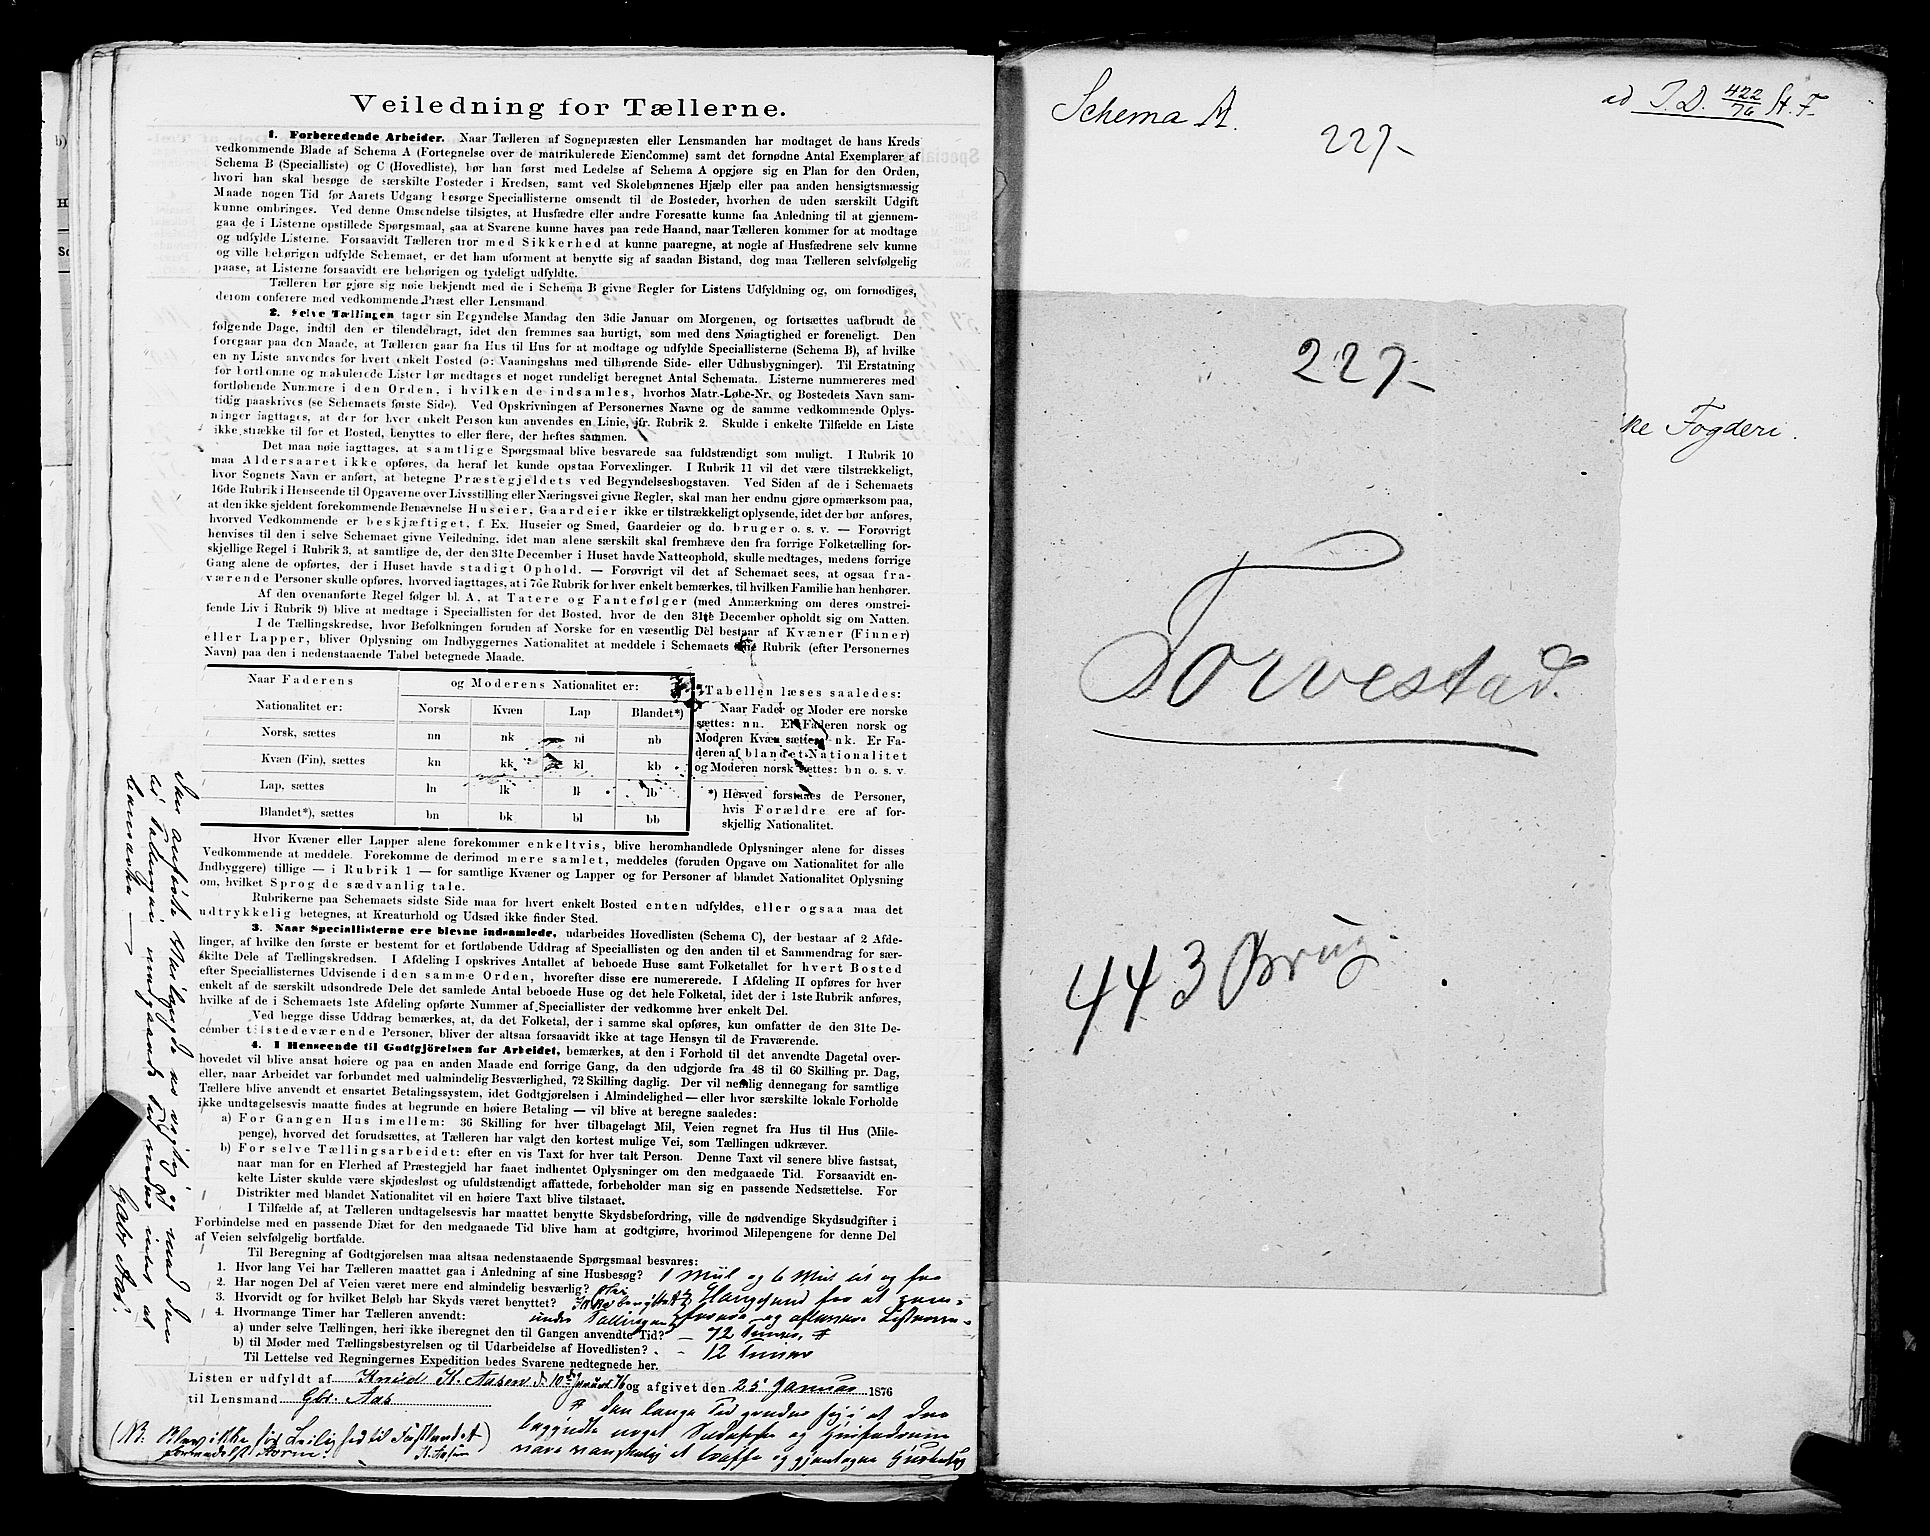 Veiledning for Tællerne.
1. Forberedende Arbeider. Naar Tælleren af Sognepræsten eller Lensmanden har modtaget de hans Kreds
vedkommende Blade af Schema A (Fortegnelse over de matrikulerede Eiendomme) samt det fornødne Antal Exemplarer af
Schema B (Specialliste) og C (Hovedliste), bør han først med Ledelse af Schema A opgjøre sig en Plan for den Orden,
hvori han skal besøge de særskilte Bosteder i Kredsen, samt ved Skolebørnenes Hjælp eller paa anden hensigtsmæssig
Maade nogen Tid før Aarets Udgang besørge Speciallisterne omsendt til de Bosteder, hvorhen de uden særskilt Udgift
kunne ombringes. Ved denne Omsendelse tilsigtes, at Husfædre eller andre Foresatte kunne faa Anledning til at gjennem-
gaa de i Listerne opstillede Spørgsmaal, saa at Svarene kunne haves paa rede Haand, naar Tælleren kommer for at modtage
og udfylde Listerne. Forsaavidt Tælleren tror med Sikkerhed at kunne paaregne, at nogle af Husfædrene selv kunne
og ville behørigen udfylde Schemaet, er det ham uforment at benytte sig af saadan Bistand, dog maa Tælleren selvfølgelig
paase, at Listerne forsaavidt ere behørigen og tydeligt udfyldte.
Tælleren bør gjøre sig nøie bekjendt med de i Schema B givne Regler for Listens Udfyldning og, om fornødiges,
derom conferere med vedkommende Præst eller Lensmand
2. Selve Tællingen tager sin Begyndelse Mandag den 3die Januar om Morgenen, og fortsættes uafbrudt de
følgende Dage, indtil den er tilendebragt, idet den fremmes saa hurtigt, som med dens Nøiagtighed er foreneligt. Den
foregaar paa den Maade, at Tælleren gaar fra Hus til Hus for at modtage og udfylde Speciallisterne (Schema B), af hvilke
en ny Liste anvendes for hvert enkelt Bosted (ɔ: Vaaningshus med tilhørende Side- eller Udhusbygninger). Til Erstatning
for bortkomne og makulerede Lister bør medtages et noget rundeligt beregnet Antal Schemata. Listerne nummereres med
fortløbende Nummere i den Orden, i hvilken de indsamles, hvorhos Matr.-Løbe-Nr. og Bostedets Navn sam-
tidig paaskrives (se Schemaets første Side). Ved Opskrivningen af Personernes Navne og de samme vedkommende Oplys-
ninger iagttages, at der for hver enkelt Person kun anvendes en Linie, jfr. Rubrik 2. Skulde i enkelte Tilfælde en Liste
ikke strække til for et Bosted, benyttes to eller flere, der heftes sammen.
Det maa nøie iagttages, at samtlige Spørgsmaal blive besvarede saa fuldstændigt som muligt. I Rubrik 10
maa Aldersaaret ikke opføres, da heraf let kunde opstaa Forvexlinger. I Rubrik 11 vil det være tilstrækkeligt,
hvor Sognets Navn er anført, at betegne Præstegjeldets ved Begyndelsesbogstaven. Ved Siden af de i Schemaets
16de Rubrik i Henseende til Opgaverne over Livsstilling eller Næringsvei givne Regler, skal man her endnu gjøre opmærksom paa,
at den ikke sjeldent forekommende Benævnelse Huseier, Gaardeier ikke er tilstrækkeligt oplysende, idet der bør anføres,
hvorved Vedkommende er beskjæftiget, f. Ex. Huseier og Smed, Gaardeier og do. bruger o. s. v. — Forøvrigt
henvises til den i selve Schemaet givne Veiledning, idet man alene særskilt skal fremhæve den fra forrige Folketælling for-
skjellige Regel i Rubrik 3, at samtlige de, der den 31te December i Huset havde Natteophold, skulle medtages, medens forrige
Gang alene de opførtes, der i Huset havde stadigt Ophold. — Forøvrigt vil det af Schemaet sees, at ogsaa fra-
værende Personer skulle opføres, hvorved iagttages, at i 7de Rubrik for hver enkelt bemærkes, til hvilken Familie han henhører.
Af den ovenanførte Regel følger bl. A., at Tatere og Fantefølger (med Anmærkning om deres omstrei-
fende Liv i Rubrik 9) blive at medtage i Speciallisten for det Bosted, hvor de den 31te December opholdt sig om Natten.
I de Tællingskredse, hvor Befolkningen foruden af Norske for en væsentlig Del bestaar af Kvæner (Finner)
eller Lapper, bliver Oplysning om Indbyggernes Nationalitet at meddele i Schemaets Rubrik (efter Personernes
Navn) paa den i nedenstaaende Tabel betegnede Maade.
Naar Faderens og Moderens Nationalitet er:
Nationalitet er: Norsk Kvæn Lap Blandet*)
Norsk, sættes nn nk nl nb
Kvæn (Fin), sættes kn kk kl kb
Lap, sættes ln lk ll lb
Blandet*), sættes bn bk bl bb
Tabellen læses saaledes:
Naar Fader og Moder ere norske
sættes: nn. Er Faderen norsk og
Moderen Kvæn sættes: nk. Er Fa-
deren af blandet Nationalitet
og Moderen norsk sættes: bn o. s. v.
*) Herved forstaaes de Personer,
hvis Forældre ere af for-
skjellig Nationalitet.
Hvor Kvæner eller Lapper alene forekommer enkeltvis, blive heromhandlede Oplysninger alene for disses
Vedkommende at meddele. Forekomme de derimod mere samlet, meddeles (foruden Opgave om Nationalitet for alle
Indbyggere) tillige — i Rubrik 1 — for samtlige Kvæner og Lapper og for Personer af blandet Nationalitet Oplysning
om, hvilket Sprog de sædvanlig tale.
Rubrikerne paa Schemaets sidste Side maa for hvert enkelt Bosted enten udfyldes, eller ogsaa maa det
udtrykkelig betegnes, at Kreaturhold og Udsæd ikke finder Sted.
3. Naar Speciallisterne ere blevne indsamlede, udarbeides Hovedlisten (Schema C), der bestaar af 2 Afde-
linger, af hvilke den første er bestemt for et fortløbende Uddrag af Speciallisten og den anden til et Sammendrag for sær-
skilte Dele af Tællingskredsen. I Afdeling I opskrives Antallet af beboede Huse samt Folketallet for hvert Bosted
efter Speciallisternes Udvisende i den samme Orden, hvorefter disse ere numererede. I Afdeling II opføres for hver
enkelt af de særskilt udsondrede Dele det samlede Antal beboede Huse og det hele Folketal, idet der i 1ste Rubrik anføres,
hvilke af de i Schemaets 1ste Afdeling opførte Nummer af Speciallister der vedkomme hver enkelt Del.
Ved begge disse Uddrag bemærkes, at, da det Folketal, der i samme skal opføres, kun omfatter de den 31te De-
cember tilstedeværende Personer, bliver der altsaa forsaavidt ikke at tage Hensyn til de Fraværende.
4. I Henseende til Godtgjörelsen for Arbeidet, bemærkes, at den i Forhold til det anvendte Dagetal over-
hovedet vil blive ansat høiere og paa en anden Maade end forrige Gang, da den udgjorde fra 48 til 60 Skilling pr. Dag,
eller, naar Arbeidet var forbundet med ualmindelig Besværlighed, 72 Skilling daglig. Der vil nemlig dennegang for samtlige
Tællere blive anvendt et ensartet Betalingssystem, idet Godtgjørelsen i Almindelighed — eller hvor særskilte lokale Forholde
ikke undtagelsesvis maatte findes at begrunde en høiere Betaling — vil blive at beregne saaledes:
a) For Gangen Hus imellem: 36 Skilling for hver tilbagelagt Mil, Veien regnet fra Hus til Hus (Mile-
penge), hvorved det forudsættes, at Tælleren har valgt den kortest mulige Vei, som Tællingen udkræver.
b) For selve Tællingsarbeidet: efter en vis Taxt for hver talt Person. Denne Taxt vil senere blive fastsat,
naar man for en Flerhed af Præstegjeld har faaet indhentet Oplysninger om den medgaaede Tid. Forsaavidt en-
kelte Lister skulde være skjødesløst og ufuldstændigt affattede, forbeholder man sig en passende Nedsættelse. For
Distrikter med blandet Nationalitet vil en høiere Taxt blive tilstaaet.
I Tilfælde af, at Tælleren undtagelsesvis har maattet benytte Skydsbefordring, ville de nødvendige Skydsudgifter i
Forbindelse med en passende Diæt for den medgaaede Tid blive ham at godtgjøre, hvorimod Milepengene for denne Del
af Veien selvfølgelig bortfalde.
Til Beregning af Godtgjørelsen maa altsaa nedenstaaende Spørgsmaal besvares:
1. Hvor lang Vei har Tælleren maattet gaa i Anledning af sine Husbesøg? 1 Miil og 6 Miil til og fra
2. Har nogen Del af Veien været mere end almindelig besværlig?
3. Hvorvidt og for hvilket Beløb har Skyds været benyttet? Ikke benyttet Haugesund for at
4. Hvormange Timer har Tælleren anvendt: under Tællingen
a) under selve Tællingen, heri ikke iberegnet den til Gangen anvendte Tid? — 72 Timer #
b) til Møder med Tællingsbestyrelsen og til Udarbeidelse af Hovedlisten? — 12 Timer
Til Lettelse ved Regningernes Expedition bedes Svarene nedtegnede her.
Listen er udfyldt af Knud K. Aasen d. 10de Januar 76 og afgivet den 25 Januar 1876
til Lensmand Gbr. Aas
# den lange Tid
K. Aasen
Gabr Aas.
Schema A.
ad J.D. 422/76 St. F.
227-
227-
ke Fogderi.
Torvestad.
443 Brug.